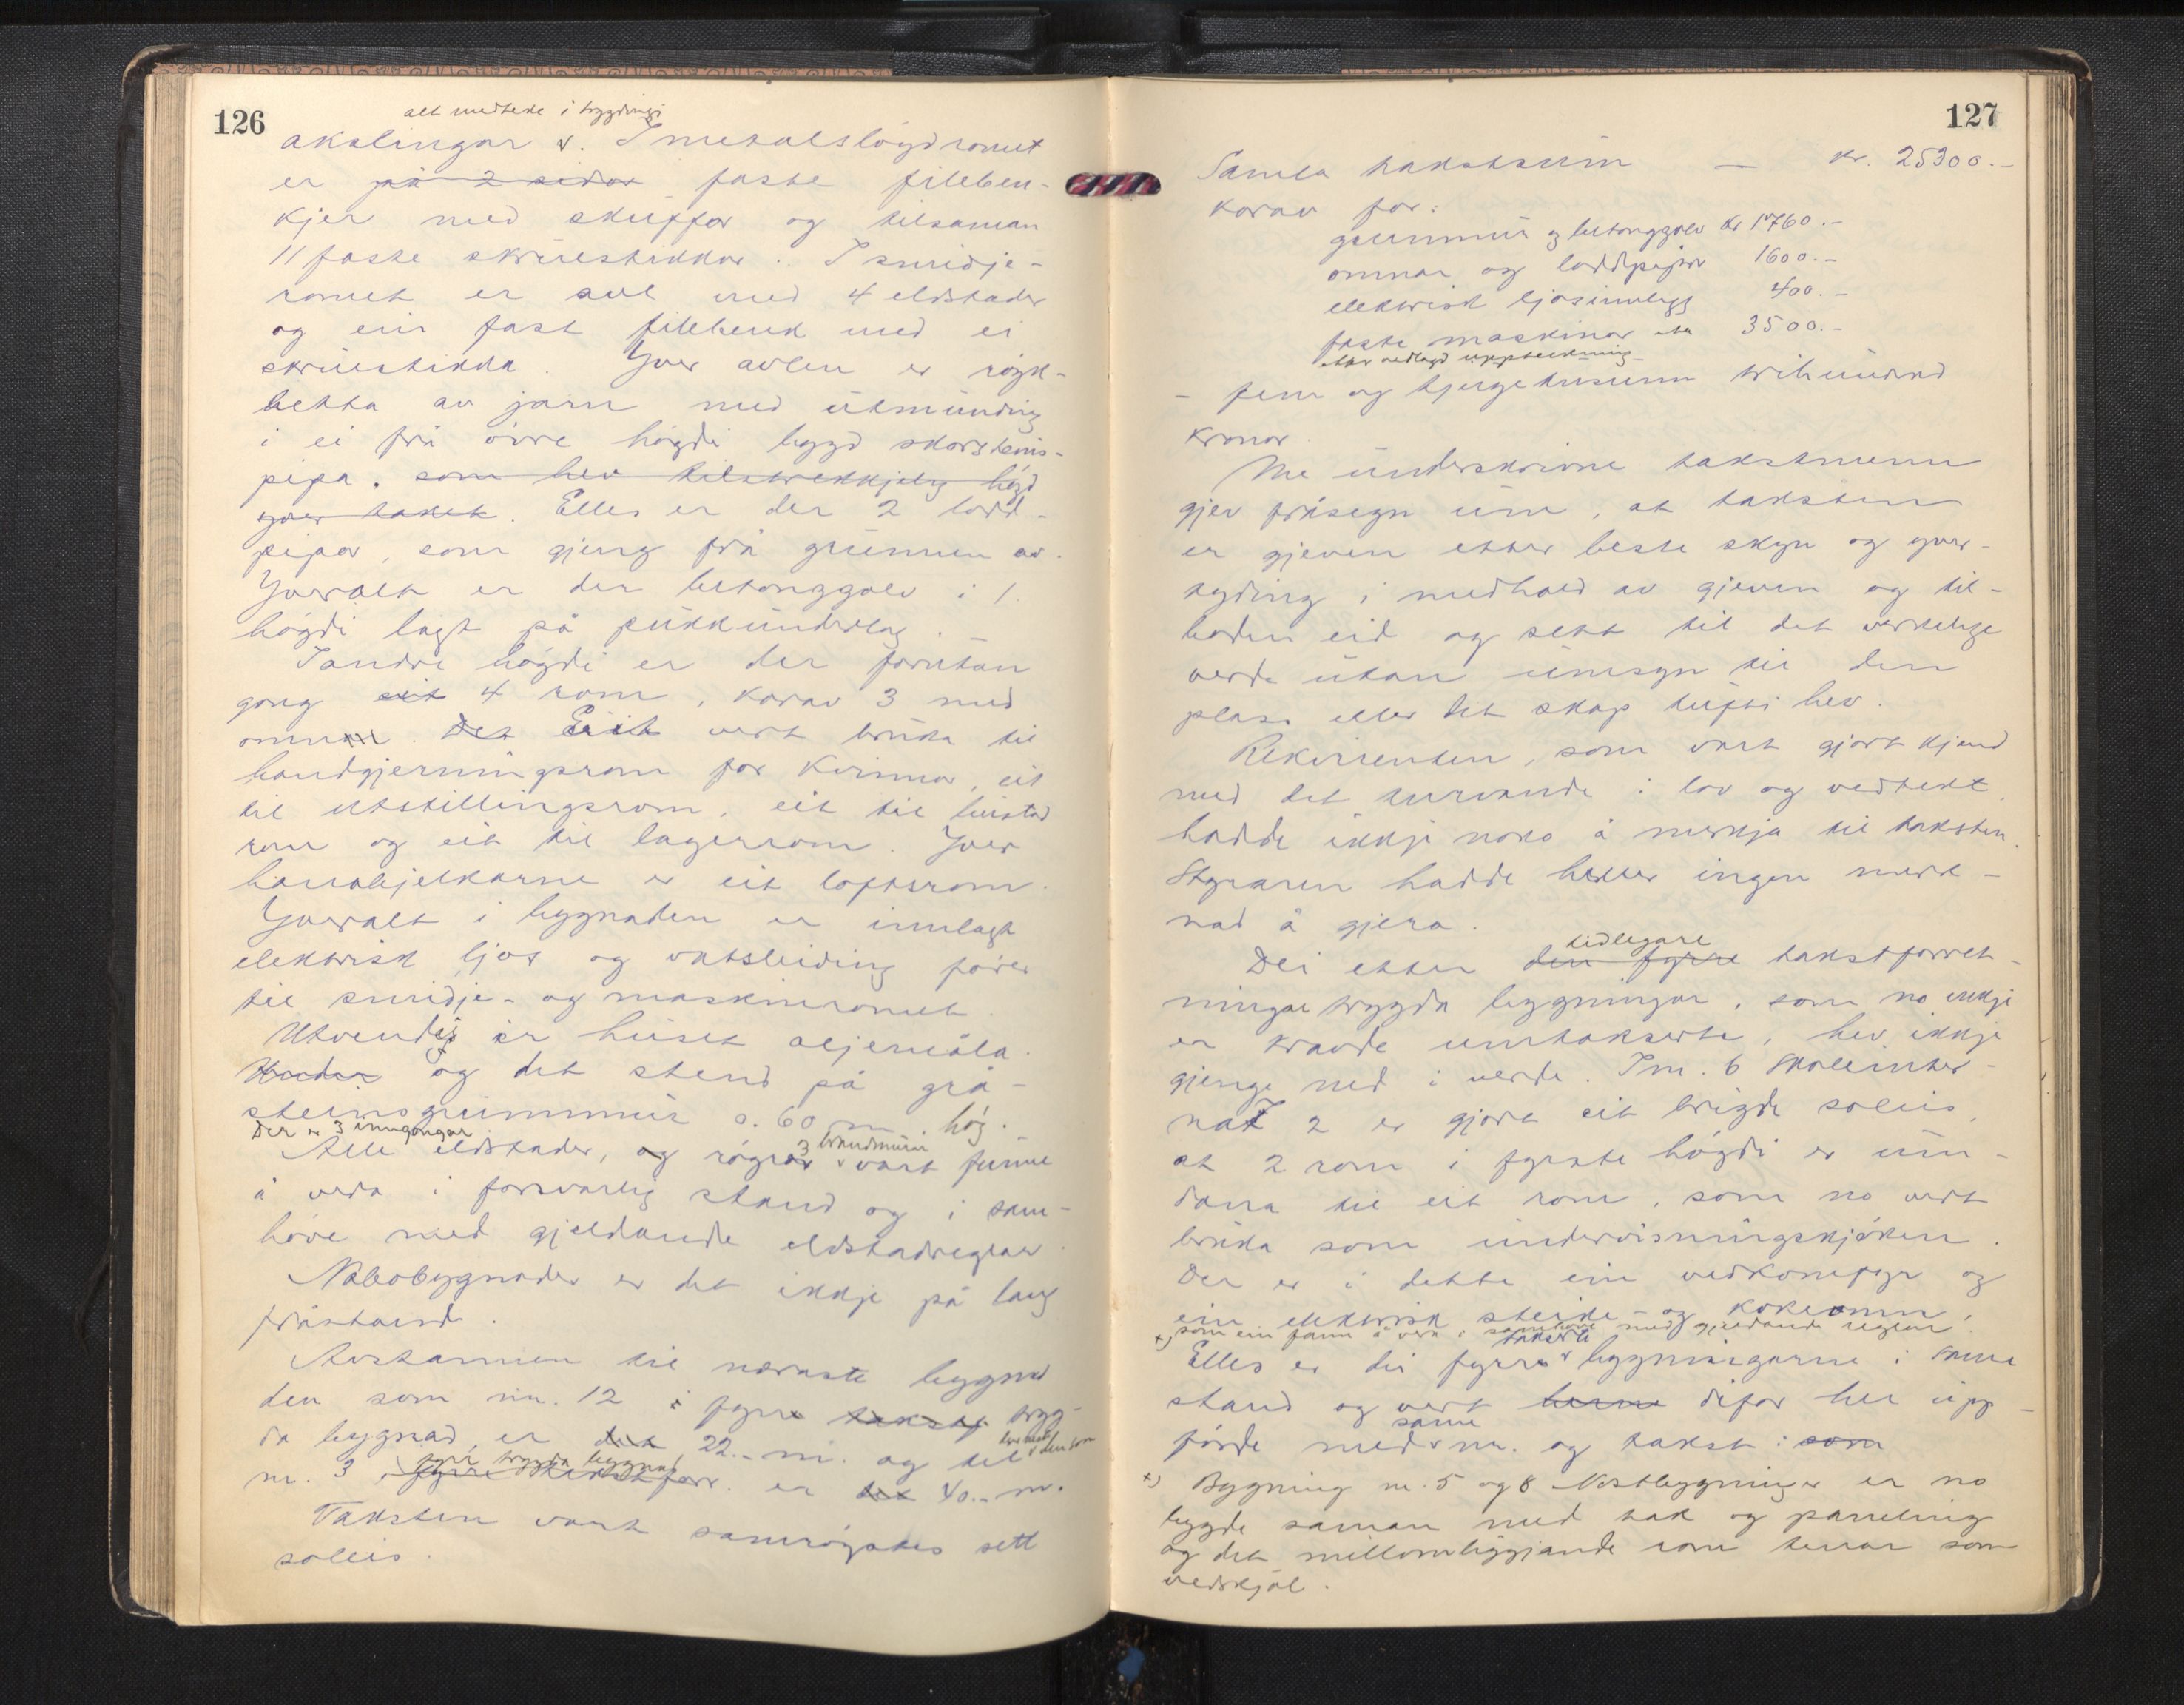 126
alt medteke i tryggingi
akslingar v. I metalsløydromet
er på 2 sidor faste fileben-
kjer med skuffor og tilsaman
11 faste skruestikkor. I smidje-
romet er avl med 4 eldstader
og ein fast filebenk med ei
skruestikka. Yver avlen er røyk-
hetta av jarn med utmunding
i ei frå øvre høgdi bygd skorsteins-
pipa. som hev tilstrekkjeleg høgd
yver taket. Elles er der 2 lodd-
pipor, som gjeng frå grunnen av.
Yveralt er der betonggolv i 1.
høgdi lagt på pukkunderlag.
I andre høgdi er der forutan
gong eit 4 rom, korav 3 med
omnar. Det Eit vert bruka til
handgjerningsrom for kvinnor, eit
til utstillingsrom, eit til bustad
rom og eit til lagerrom. Yver
hanabjelkarne er eit loftsrom.
Yveralt i bygnaden er innlagt
elektrisk ljos og vatsleiding fører
til smidje- og maskinromet.
Utvendig er huset oljemåla
Under og det stend på grå-
steinsgrunnmur o. 60 m. høg.
Der er 3 inngangar
Alle eldstader, og røgrør 3 brandmurar vart funne
å vera i forsvarleg stand og i sam-
høve med gjeldande eldstadreglar.
Nabobygnader er det ikkje på lang
fråstand.
Avstannen til næraste bygnad
den som nr. 12 i fyrr takst trygg-
da bygnad, er det 22.- m. og til den som
nr. 3 fyrr trygda bygnad er det 40.- m.
Taksten vart samrøystes sett
soleis.
127
Samla takstsum — kr. 25300.-
korav for:
grunnmur og betonggolv kr 1760.-
omnar og loddpipor 1600.-
elektrisk ljosinnlegg 400.-
faste maskinor etc 3500.-
etter vedlagd uppteikning
- fem og tjugetusund trihundrad
kronor
Me underskrivne takstmenn
gjev fråsegn um, at taksten
er gjeven etter beste skyn og yver-
tyding i medhald av gjeven og til-
boden eid og sett til det verkelege
verde utan umsyn til den
plass eller det skap tufti hev.
Rekvirenten, som vart gjort kjend
med det turvande i lov og vedtekt
hadde ikkje noko å merkja til taksten.
Styraren hadde heller ingen merk-
nad å gjera.
Dei etter den fyrre tidlegare takstforret-
ningar trygda bygningar, som no ikkje
er kravde umtakserte, hev ikkje
gjenge ned i verde. I nr. 6 Skoleinter-
nat 2 er gjort eit brigde soleis,
at 2 rom i fyrste høgdi er um-
dana til eit rom, som no vert
bruka som undervisningskjøken.
Der er i dette ein vedkomfyr og
ein elektrisk steike- og kokeomn,
x) som ein fann å vera i samhøve med gjeldande reglar.
Elles er dei fyrr takserte bygningarne i same
stand og vert difor her upp-
førde med same nr. og takst: som
x) Bygning nr. 5 og 8 Vestbygningar er no
bygde saman med tak og paneling
og det millomliggjande rom tenar som
vedskjol.